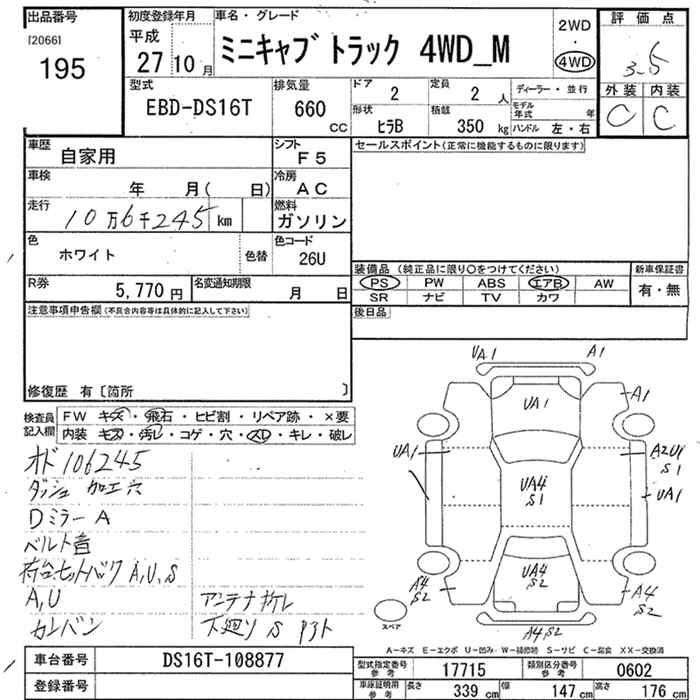 出品番号
[2066]
195
初度登録年月
平成
27 10 月
車名・グレード
ミニキャブ トラック 4WD_M
2WD
・
4WD
評価点
3.5
外装 内装
C C
型式
EBD-DS16T
排気量
660
CC
ドア
2
定員
2 人
形状
ヒラB
積載
350 kg
ディーラー・並行
モデル年式 年
ハンドル 左・右
車歴
自家用
シフト
F5
車検
年 月( 日)
冷房
AC
走行
10万6千245 km
燃料
ガソリン
色
ホワイト
色替
色コード
26U
R券
5,770 円
名変通知期限
月 日
セールスポイント(正常に機能するものに限ります)
装備品 (純正品に限り〇をつけてください)
PS PW ABS エアB AW
SR ナビ TV カワ
新車保証書
有・無
後日品
注意事項申告欄(不具合内容等は具体的に記入して下さい)
修復歴 有〔箇所 〕
検査員記入欄
FW キズ・飛石・ヒビ割・リペア跡・×要
内装 キズ・汚レ・コゲ・穴・スレ・キレ・破レ
オド106245
ダッシュ 加工穴
Dミラー A
ベルト音
荷台セットバック A,U,S
A,U アンテナ折レ
カレンバン 下廻り S
UA1 A1
UA1
A1
UA1
A2U1
S1
UA4
S1
UA1
UA4
S2
A4
S2
A4
S2
A4S2
スペア
A-キズ E-エクボ U-凹み W-補修跡 S-サビ C-腐食 XX-交換済
車台番号
DS16T-108877
登録番号
型式指定番号 参考
17715
類別区分番号 参考
0602
車庫証明用 参考
長さ 339 cm
幅 147 cm
高さ 176 cm